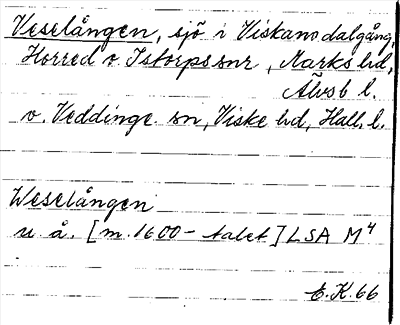 Veselången, sjö i Viskans dalgång,
Horred o. Istorps snr, Marks hd,
Älvsb l.
o. Veddinge sn, Viske hd, Hall. l.
Weselången
u. å. [m. 1600-talet] LSA M⁴
E.K. 66